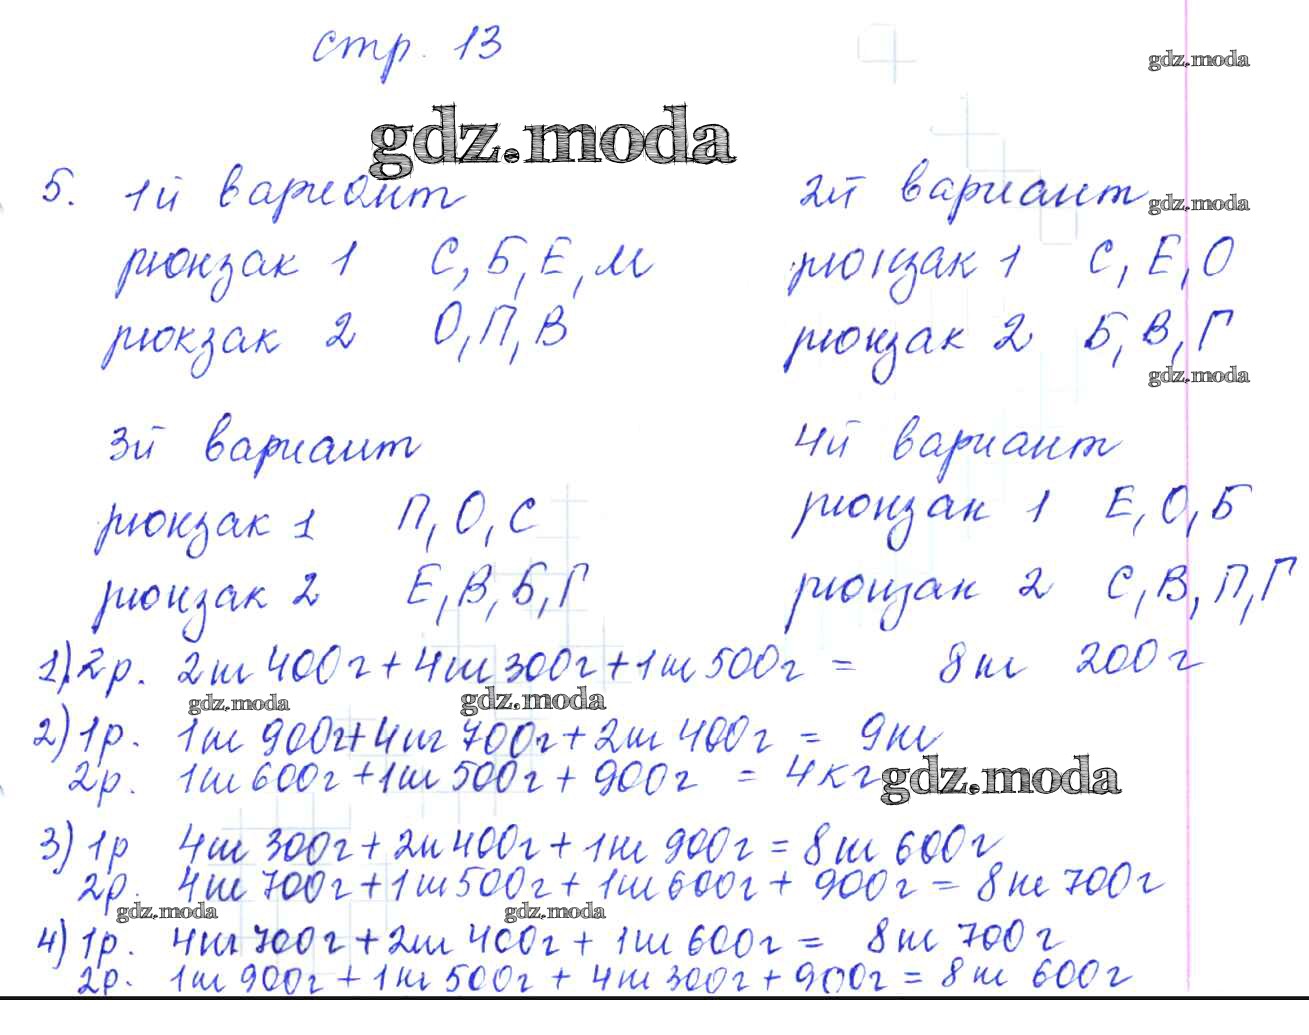 стр. 13
gdz.moda
gdz.moda
5. 1й вариант 2й вариант
gdz.moda
рюкзак 1 С, Б, Е, М рюкзак 1 С, Е, О
рюкзак 2 О, П, В рюкзак 2 Б, В, Г
gdz.moda
3й вариант 4й вариант
рюкзак 1 П, О, С рюкзак 1 Е, О, Б
рюкзак 2 Е, В, Б, Г рюкзак 2 С, В, П, Г
1) 2р. 2кг 400г + 4кг 300г + 1кг 500г = 8кг 200г
gdz.moda gdz.moda
2) 1р. 1кг 900г + 4кг 700г + 2кг 400г = 9кг
2р. 1кг 600г + 1кг 500г + 900г = 4кг
gdz.moda
3) 1р 4кг 300г + 2кг 400г + 1кг 900г = 8кг 600г
2р. 4кг 700г + 1кг 500г + 1кг 600г + 900г = 8кг 700г
gdz.moda gdz.moda
4) 1р. 4кг 700г + 2кг 400г + 1кг 600г = 8кг 700г
2р. 1кг 900г + 1кг 500г + 4кг 300г + 900г = 8кг 600г